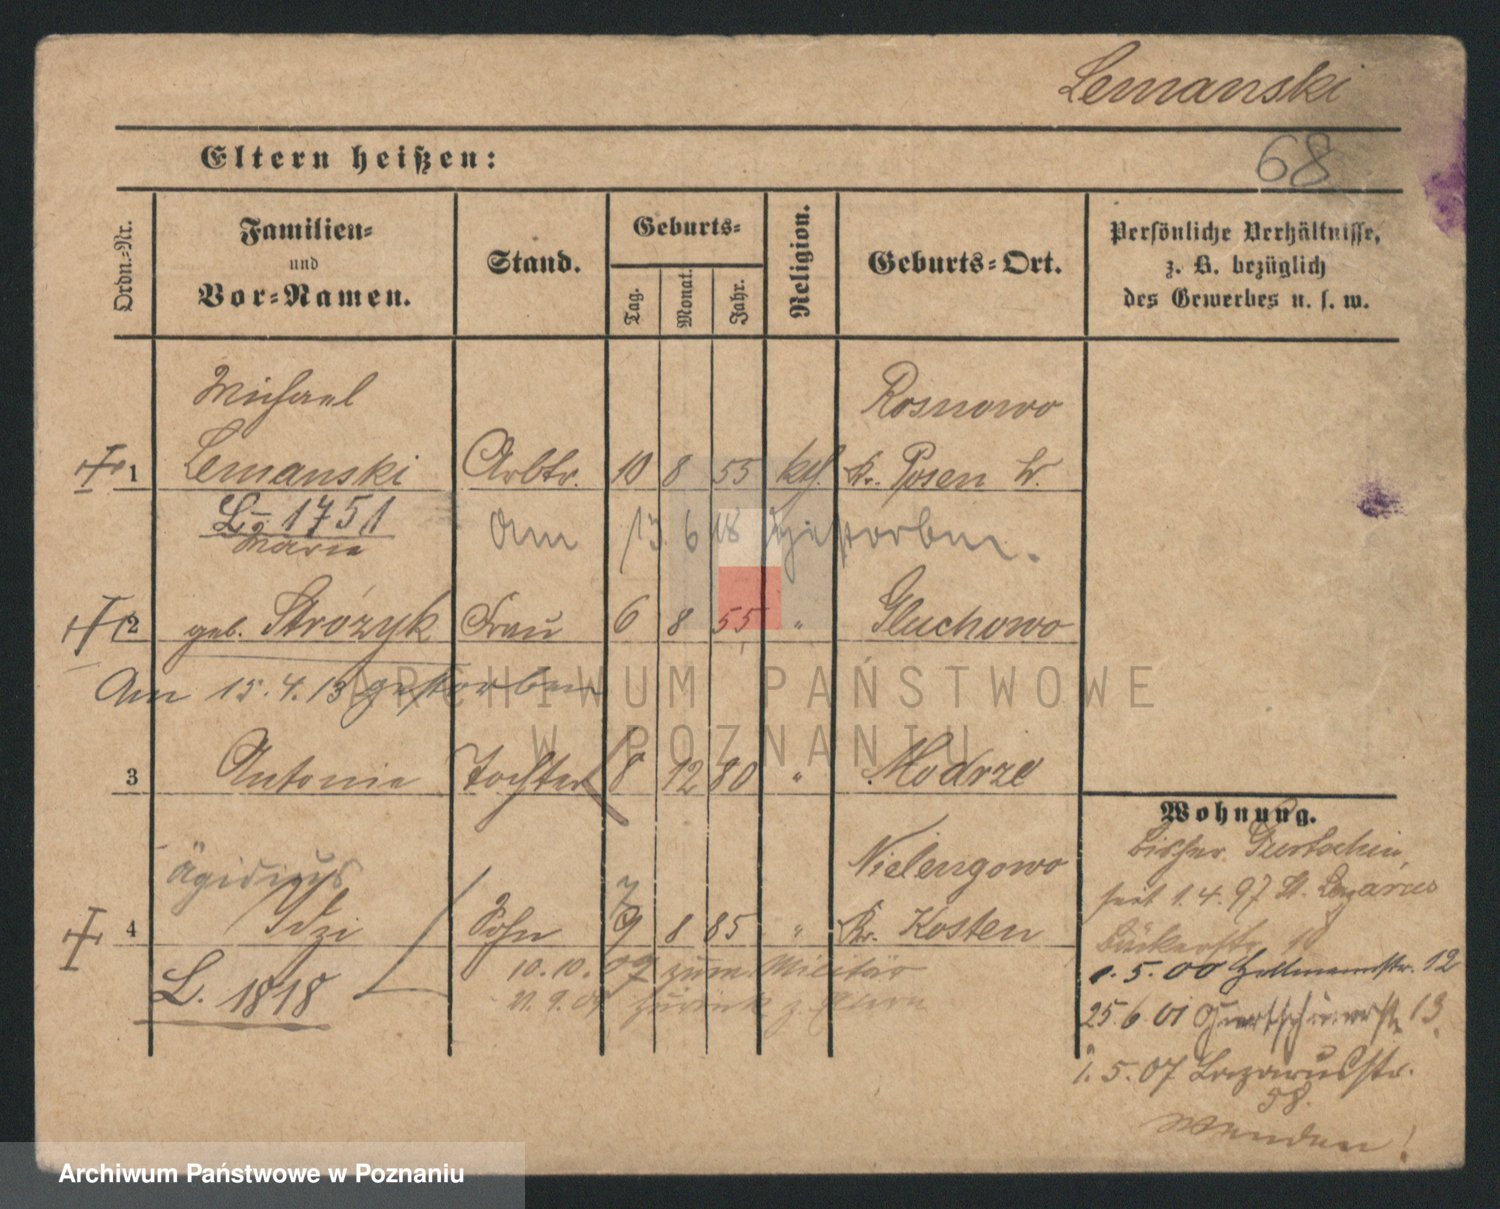 Lemanski
68
Eltern heißen:
Ordn.-Nr.
Familien-
und
Vor-Namen.
Stand.
Geburts-
Tag.
Monat.
Jahr.
Religion.
Geburts-Ort.
Persönliche Verhältnisse,
z. B. bezüglich
des Gewerbes u. s. w.
Michael
Rosnowo
1 Lemanski Arbtr. 10 8 55 kth. Kr. Posen W.
L. 1751
Am 13. 6 18 gestorben.
Maria
2 geb. Strózyk Frau 6 8 55 " Gluchowo
Am 15.4.13 gestorben
3 Antonie Tochter 8 12 80 " Modrze
Ägidius
Nielengowo
7
4 Idzi Sohn 9 8 85 " Kr. Kosten
L. 1818
10.10.07 zum Militär
zurück z. Eltern
Wohnung.
bisher Gurtschin,
seit 1.4.97 St. Lazarus
Bäckerstr. 10
1.5.00 12
25.6.01 Gurtschinerstr. 13
1.5.07 Lazarusstr.
58.
Wenden!
ARCHIWUM PAŃSTWOWE
W POZNANIU
Archiwum Państwowe w Poznaniu